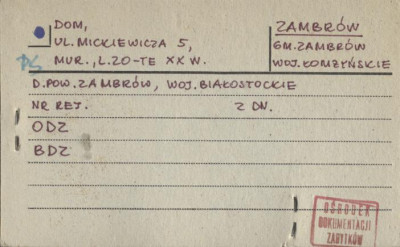 DOM,
UL. MICKIEWICZA 5,
MUR., L.20-TE XX W.
ZAMBRÓW
GM. ZAMBRÓW
WOJ. ŁOMŻYŃSKIE
D. POW. ZAMBRÓW, WOJ. BIAŁOSTOCKIE
NR REJ. Z DN.
ODZ
BDZ
OŚRODEK
DOKUMENTACJI
ZABYTKÓW